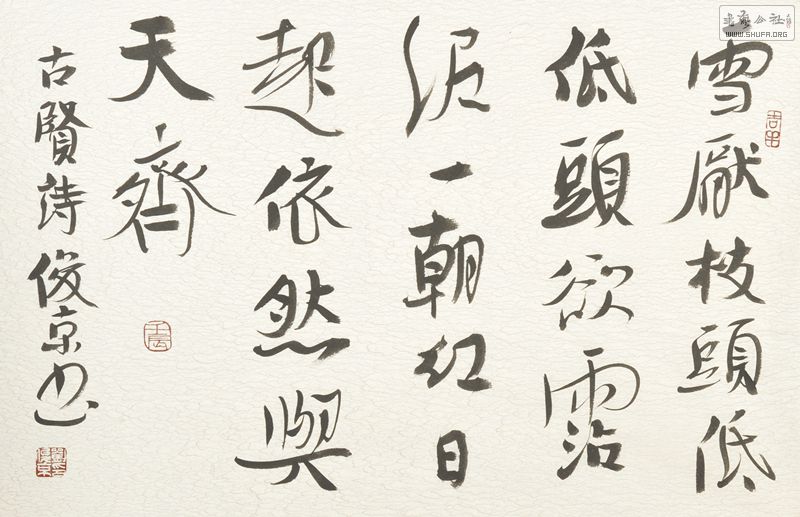 雪厭枝頭低
低頭欲霑
泥一朝紅日
起依然與
天齊
古賢詩俊京书
公社
www.SHUFA.ORG